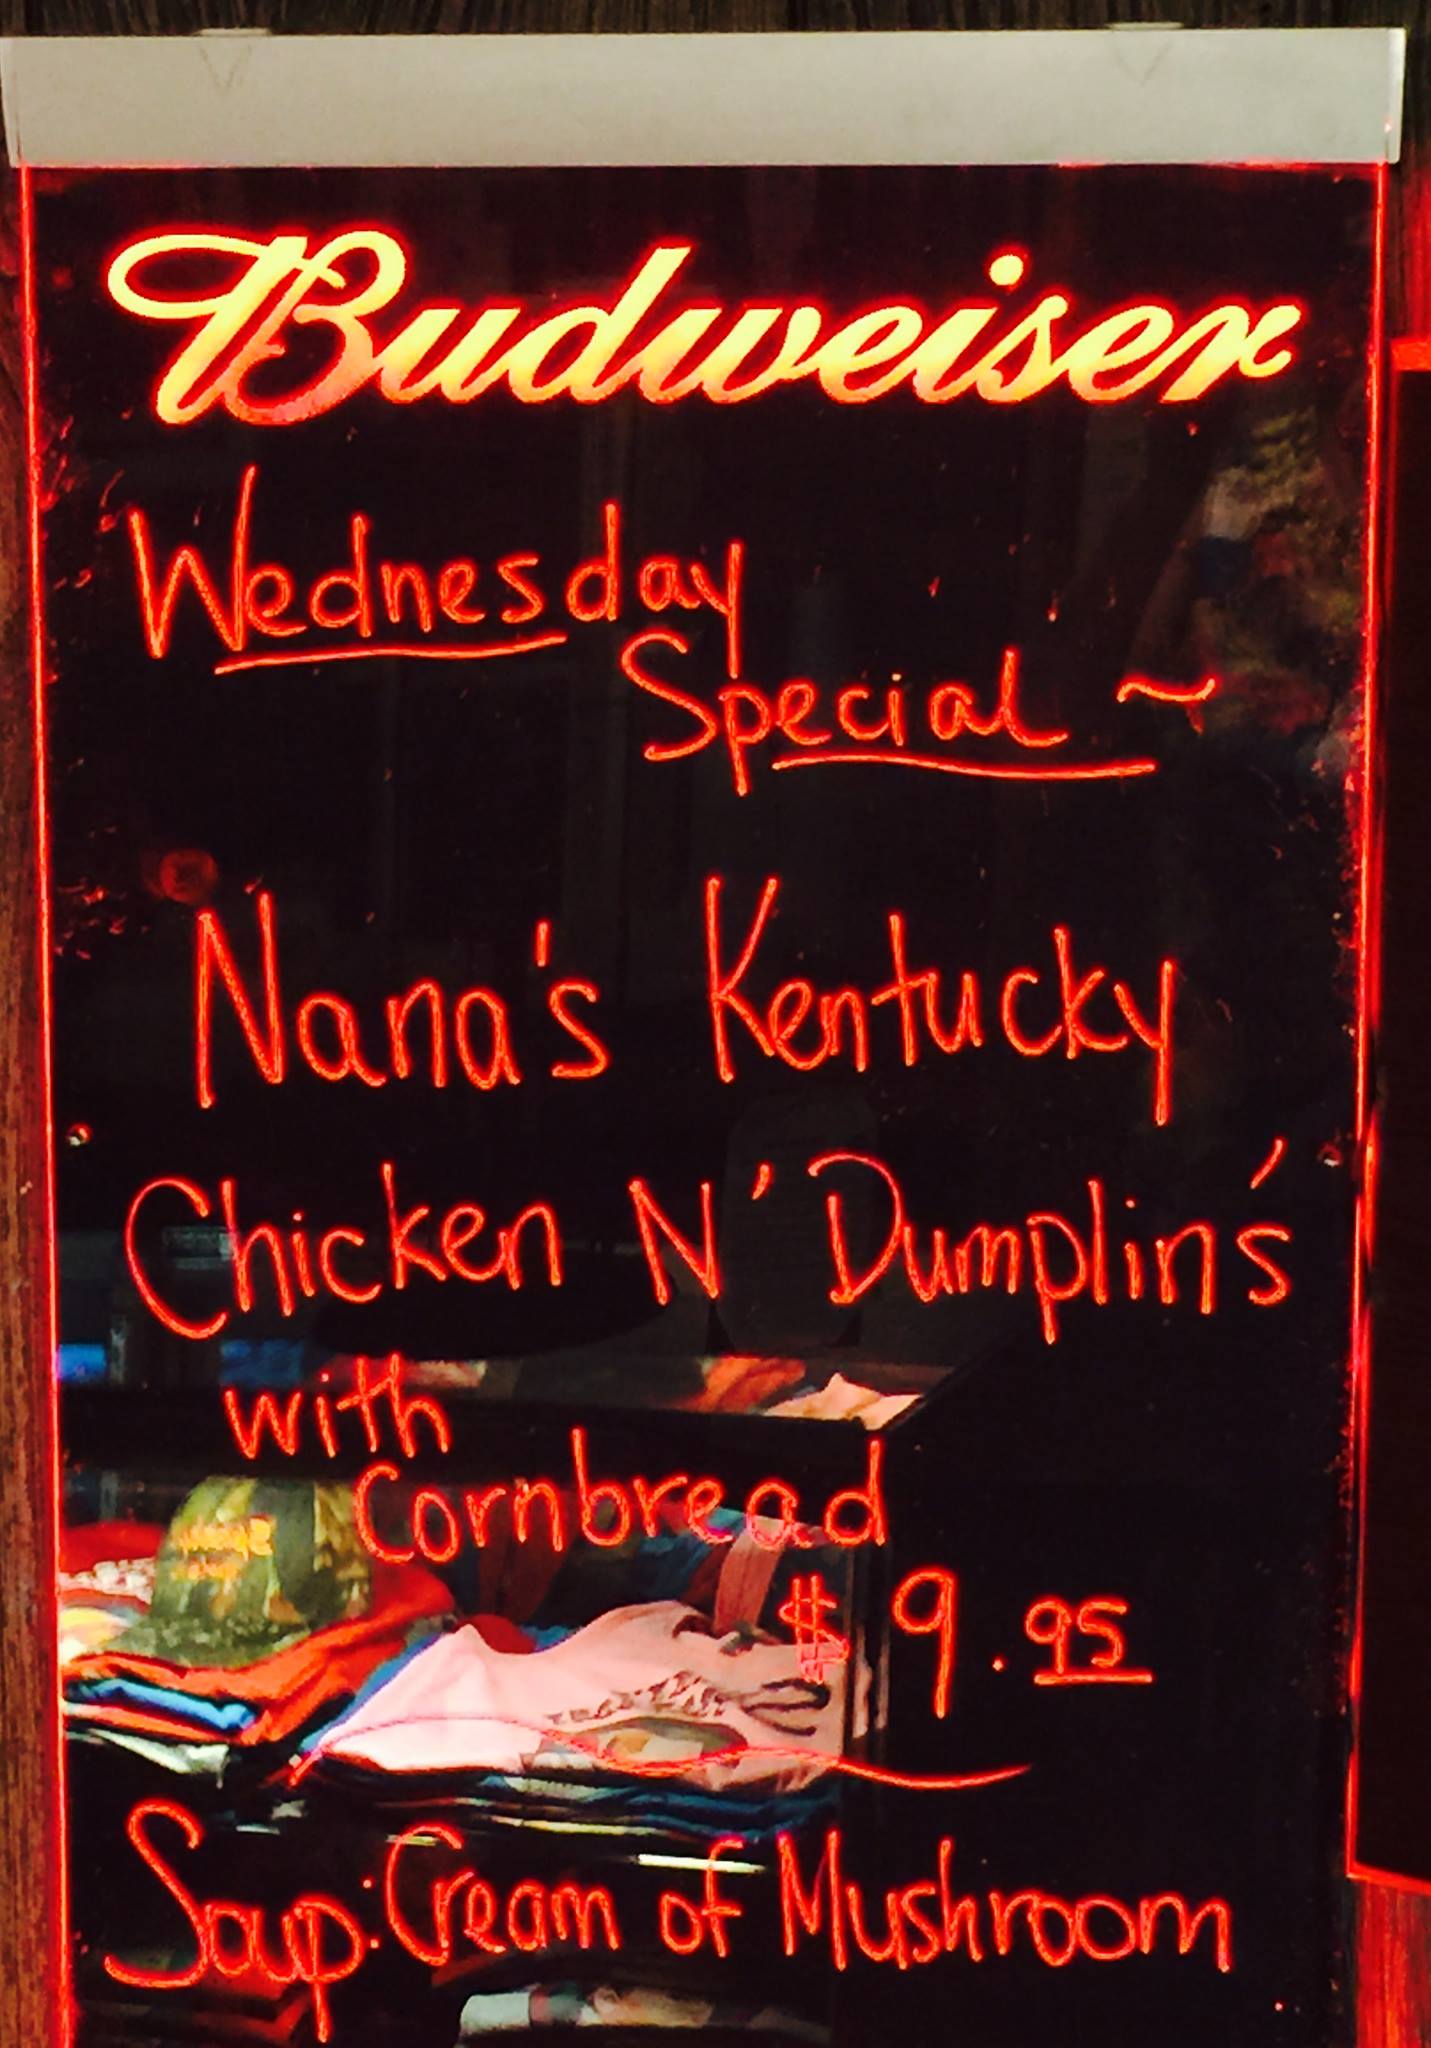 Budweiser
Wednesday
Special ~
Nana's Kentucky
Chicken N' Dumplin's
with
Cornbread
$ 9.95
Soup: Cream of Mushroom